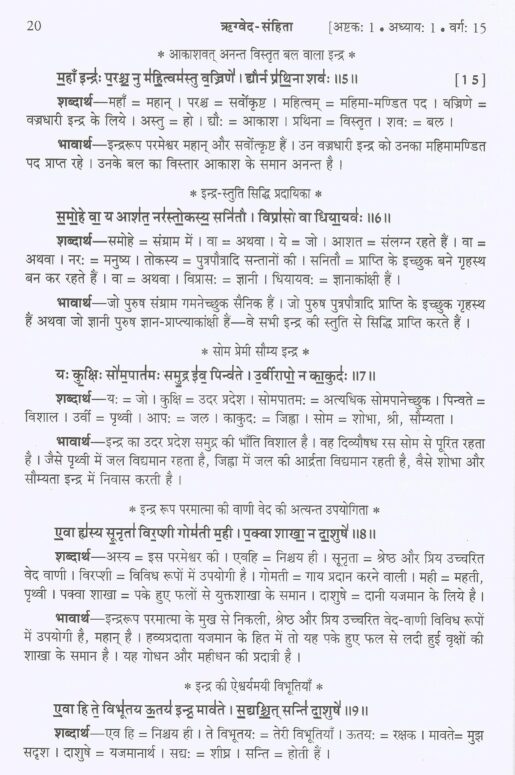 20 ऋग्वेद-संहिता [अष्टक: 1 • अध्याय: 1 • वर्ग: 15
* आकाशवत् अनन्त विस्तृत बल वाला इन्द्र *
म॒हाँ इन्द्रः॑ प॒रश्च॒ नु म॑हि॒त्वम॑स्तु व॒ज्रिणे॑ । द्यौर्न प्र॑थि॒ना शवः॑ ॥5॥ [15]
शब्दार्थ—महाँ = महान् । परश्च = सर्वोकृष्ट । महित्वम् = महिमा-मण्डित पद । वज्रिणे =
वज्रधारी इन्द्र के लिये । अस्तु = हो । द्यौ: = आकाश । प्रथिना = विस्तृत । शव: = बल ।
भावार्थ—इन्द्ररूप परमेश्वर महान् और सर्वोत्कृष्ट हैं । उन वज्रधारी इन्द्र को उनका महिमामण्डित
पद प्राप्त रहे । उनके बल का विस्तार आकाश के समान अनन्त है ।
* इन्द्र-स्तुति सिद्धि प्रदायिका *
स॒मो॒हे वा॒ य आश॑त॒ नर॑स्तो॒कस्य॒ सनि॑तौ । विप्रा॑सो वा धिया॒यवः॑ ॥6॥
शब्दार्थ—समोहे = संग्राम में । वा = अथवा । ये = जो । आशत = संलग्न रहते हैं । वा =
अथवा । नर: = मनुष्य । तोकस्य = पुत्रपौत्रादि सन्तानों की । सनितौ = प्राप्ति के इच्छुक बने गृहस्थ
बन कर रहते हैं । वा = अथवा । विप्रास: = ज्ञानी । धियायव: = ज्ञानाकांक्षी हैं ।
भावार्थ—जो पुरुष संग्राम गमनेच्छुक सैनिक हैं । जो पुरुष पुत्रपौत्रादि प्राप्ति के इच्छुक गृहस्थ
हैं अथवा जो ज्ञानी पुरुष ज्ञान-प्राप्त्याकांक्षी हैं—वे सभी इन्द्र की स्तुति से सिद्धि प्राप्ति करते हैं ।
* सोम प्रेमी सौम्य इन्द्र *
यः कु॒क्षिः सो॑म॒पात॑मः समु॒द्र इ॑व॒ पिन्व॑ते । उ॒र्वीरापो॒ न का॒कुदः॑ ॥7॥
शब्दार्थ—य: = जो । कुक्षि = उदर प्रदेश । सोमपातम: = अत्यधिक सोमपानेच्छुक । पिन्वते =
विशाल । उर्वी = पृथ्वी । आप: = जल । काकुद: = जिह्वा । सोम = शोभा, श्री, सौम्यता ।
भावार्थ—इन्द्र का उदर प्रदेश समुद्र की भाँति विशाल है । वह दिव्यौषध रस सोम से पूरित रहता
है । जैसे पृथ्वी में जल विद्यमान रहता है, जिह्वा में जल की आर्द्रता विद्यमान रहती है, वैसे शोभा और
सौम्यता इन्द्र में निवास करती है ।
* इन्द्र रूप परमात्मा की वाणी वेद की अत्यन्त उपयोगिता *
ए॒वा ह्य॑स्य सू॒नृता॑ विर॒प्शी गोम॑ती म॒ही । प॒क्वा शाखा॒ न दा॒शुषे॑ ॥8॥
शब्दार्थ—अस्य = इस परमेश्वर की । एवहि = निश्चय ही । सूनृता = श्रेष्ठ और प्रिय उच्चरित
वेद वाणी । विरप्शी = विविध रूपों में उपयोगी है । गोमती = गाय प्रदान करने वाली । मही = महती,
पृथ्वी । पक्वा शाखा = पके हुए फलों से युक्तशाखा के समान । दाशुषे = दानी यजमान के लिये है ।
भावार्थ—इन्द्ररूप परमात्मा के मुख से निकली, श्रेष्ठ और प्रिय उच्चरित वेद-वाणी विविध रूपों
में उपयोगी है, महान् है । हव्यप्रदाता यजमान के हित में तो यह पके हुए फल से लदी हुई वृक्षों की
शाखा के समान है । यह गोधन और महीधन की प्रदात्री है ।
* इन्द्र की ऐश्वर्यमयी विभूतियाँ *
ए॒वा हि ते॒ विभू॑तय ऊ॒तय॑ इन्द्र॒ माव॑ते । स॒द्यश्चि॒त् सन्ति॑ दा॒शुषे॑ ॥9॥
शब्दार्थ—एव हि = निश्चय ही । ते विभूतय: = तेरी विभूतियाँ । ऊतय: = रक्षक । मावते= मुझ
सदृश । दाशुषे = यजमानार्थ । सद्य: = शीघ्र । सन्ति = होती हैं ।